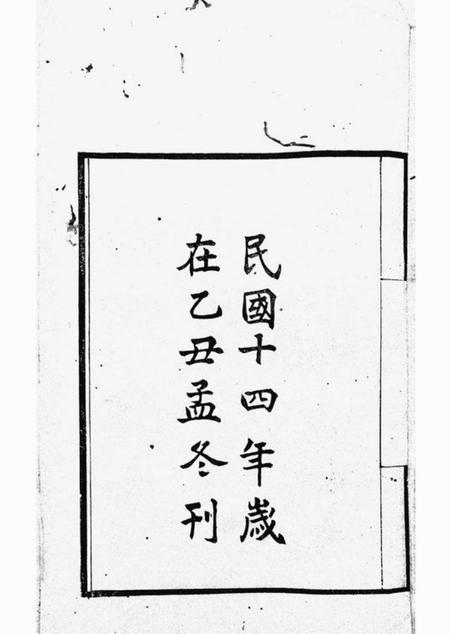 民國十四年歲
在乙丑孟冬刊